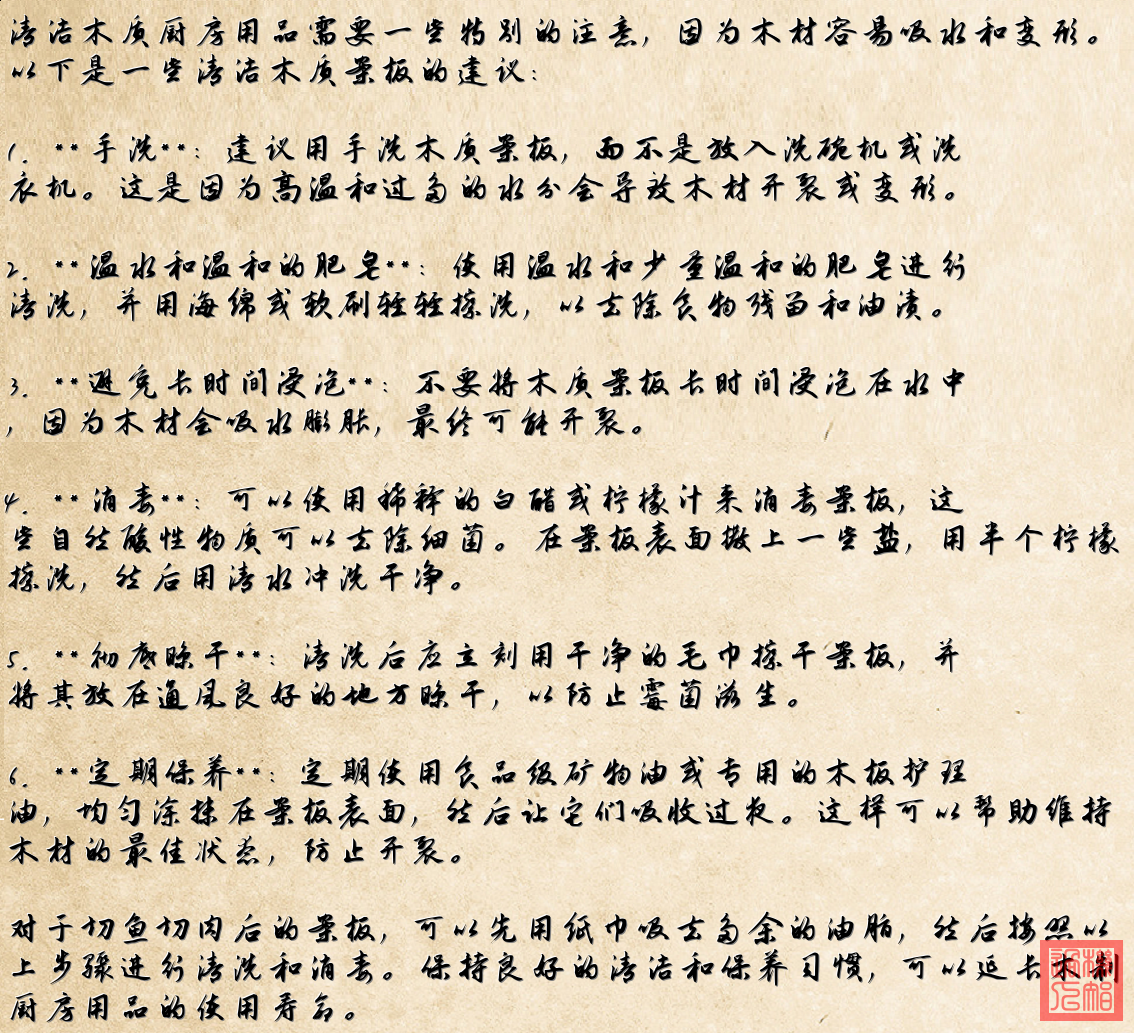 清洁木质厨房用品需要一些特别的注意，因为木材容易吸水和变形。
以下是一些清洁木质案板的建议：
1. **手洗**：建议用手洗木质案板，而不是放入洗碗机或洗
衣机。这是因为高温和过多的水分会导致木材开裂或变形。
2. **温水和温和的肥皂**：使用温水和少量温和的肥皂进行
清洗，并用海绵或软刷轻轻擦洗，以去除食物残留和油渍。
3. **避免长时间浸泡**：不要将木质案板长时间浸泡在水中
，因为木材会吸水膨胀，最终可能开裂。
4. **消毒**：可以使用稀释的白醋或柠檬汁来消毒案板，这
些自然酸性物质可以去除细菌。在案板表面撒上一些盐，用半个柠檬
擦洗，然后用清水冲洗干净。
5. **彻底晾干**：清洗后应立刻用干净的毛巾擦干案板，并
将其放在通风良好的地方晾干，以防止霉菌滋生。
6. **定期保养**：定期使用食品级矿物油或专用的木板护理
油，均匀涂抹在案板表面，然后让它们吸收过夜。这样可以帮助维持
木材的最佳状态，防止开裂。
对于切鱼切肉后的案板，可以先用纸巾吸去多余的油脂，然后按照以
上步骤进行清洗和消毒。保持良好的清洁和保养习惯，可以延长木制
厨房用品的使用寿命。